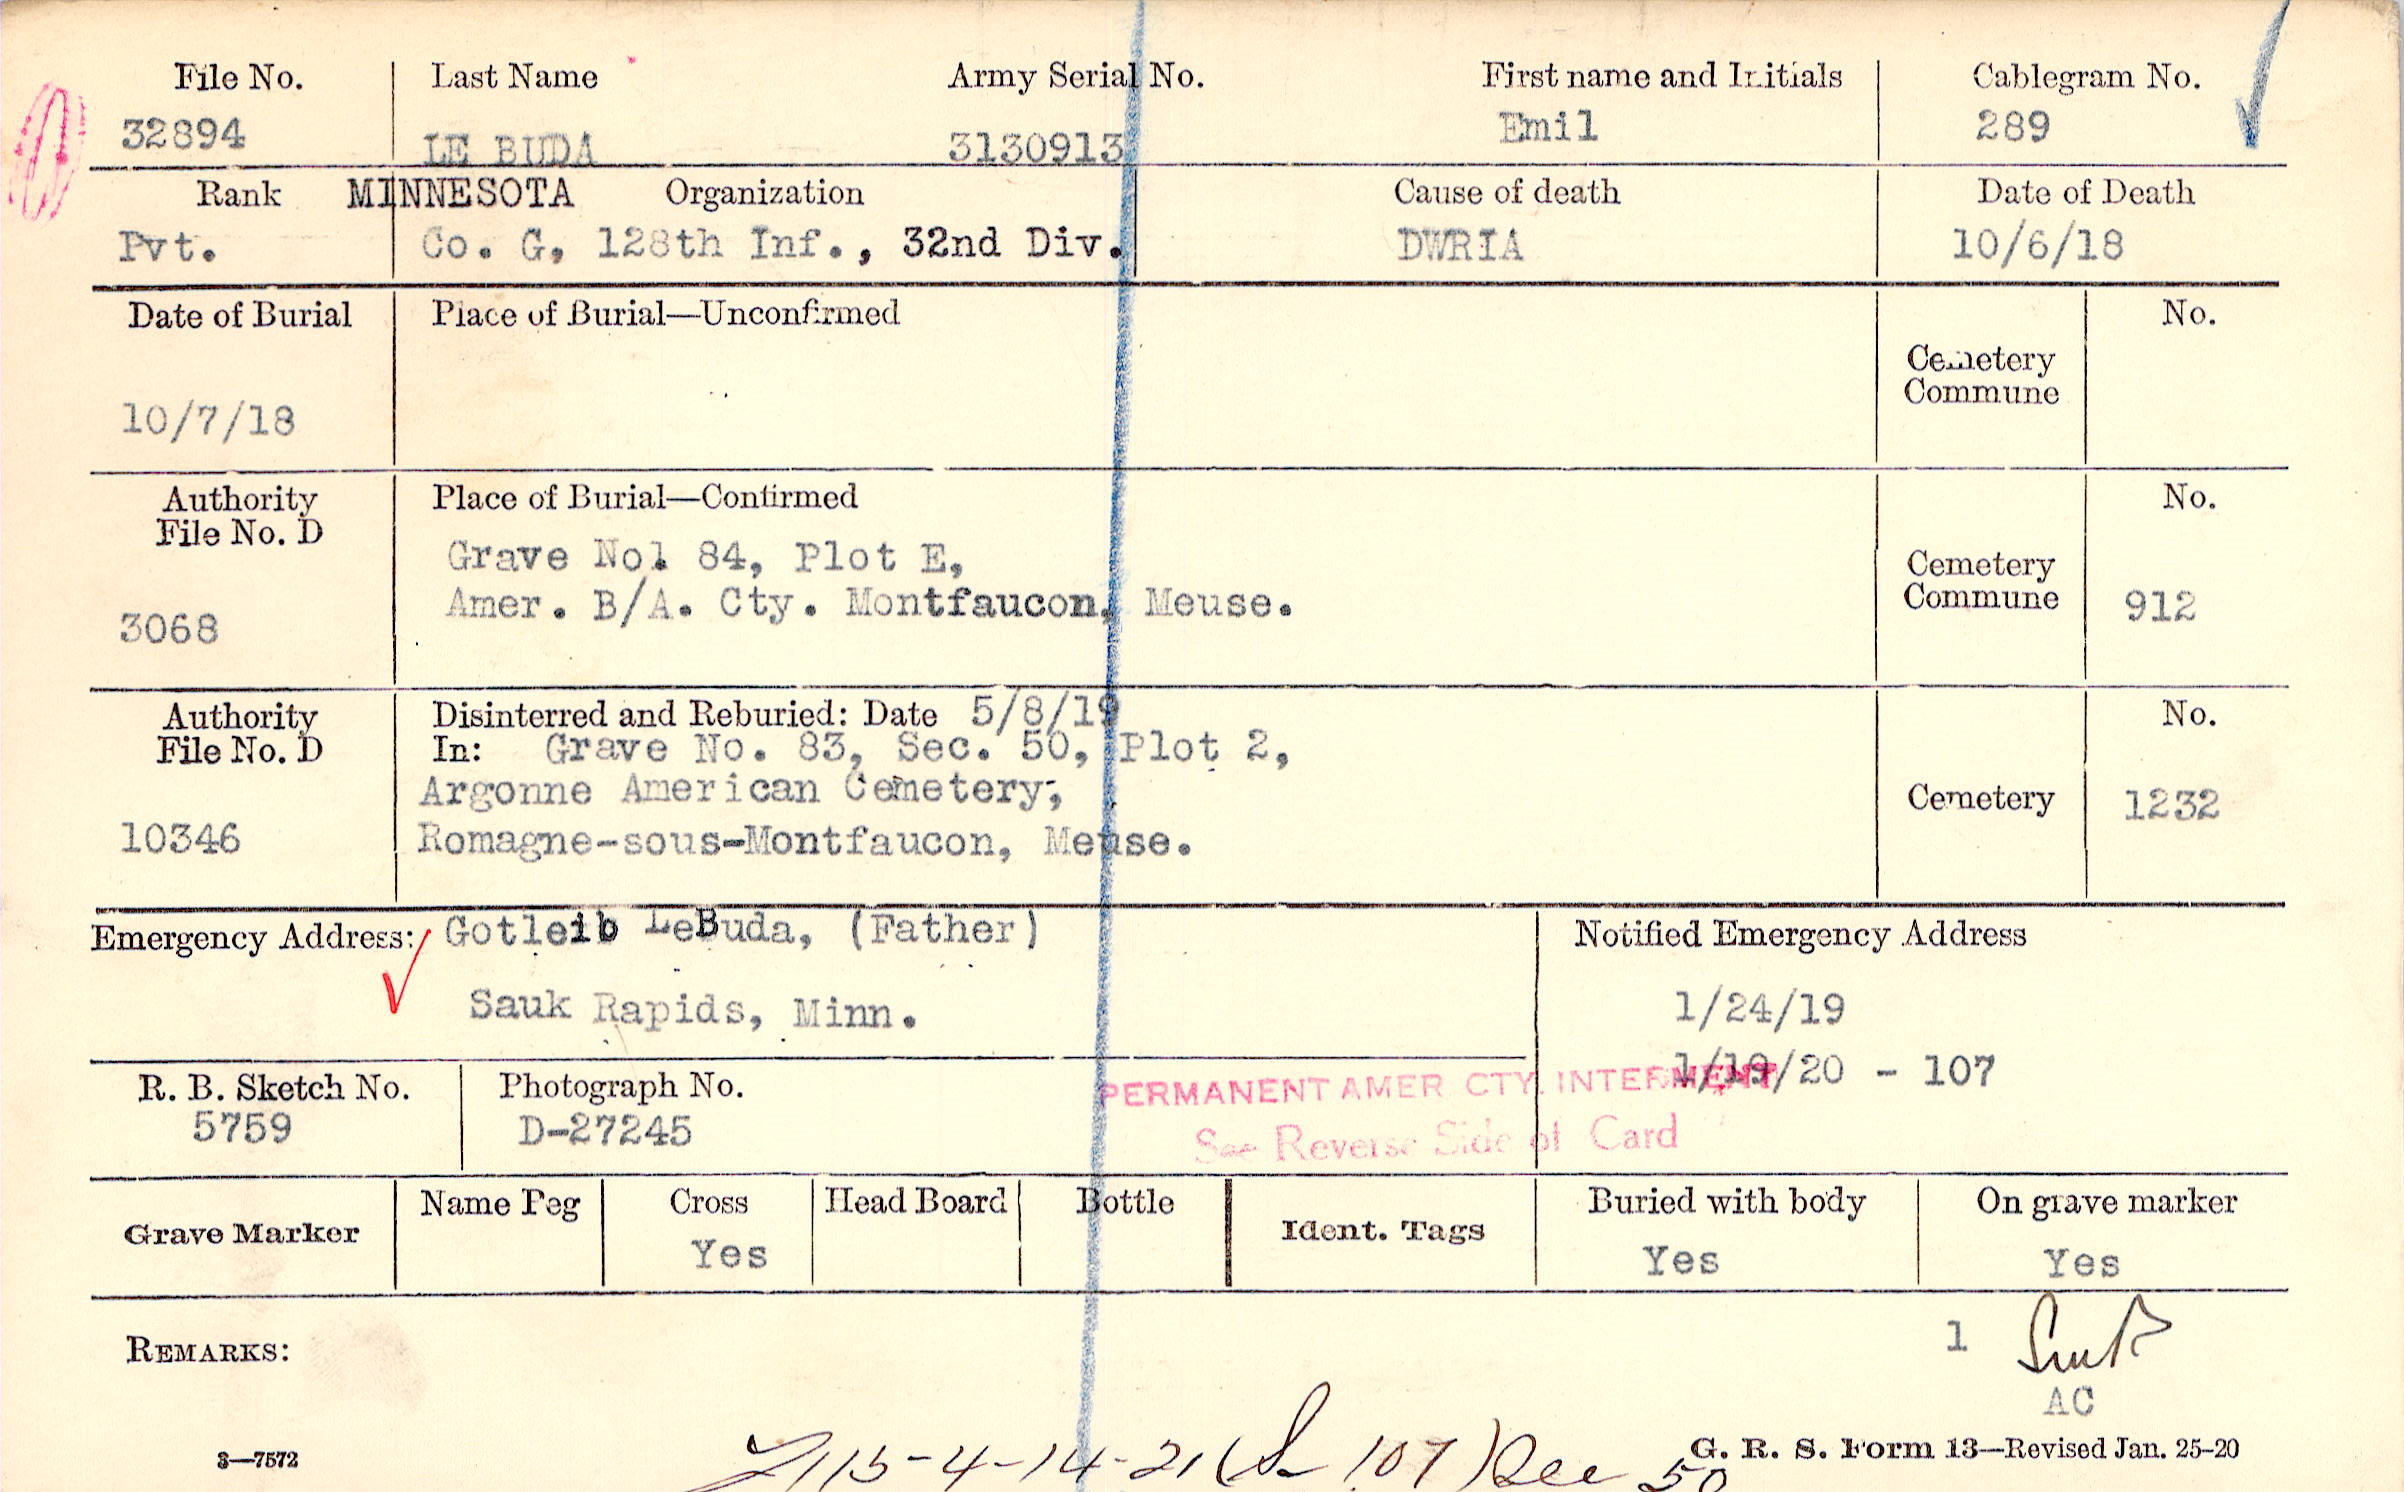 File No. Last Name Army Serial No. First name and Initials Cablegram No.
32894 LE BUDA 3130913 Emil 289
Rank MINNESOTA Organization Cause of death Date of Death
Pvt. Co. G, 128th Inf., 32nd Div. DWRIA 10/6/18
Date of Burial Place of Burial—Unconfirmed No.
Cemetery
Commune
10/7/18
Authority Place of Burial—Confirmed No.
File No. D
Grave No. 84, Plot E,
Cemetery
Amer. B/A. Cty. Montfaucon, Meuse.
Commune 912
3068
Authority Disinterred and Reburied: Date 5/8/19 No.
File No. D In: Grave No. 83, Sec. 50, Plot 2,
Argonne American Cemetery,
Cemetery 1232
10346 Romagne-sous-Montfaucon, Meuse.
Emergency Address: Gotleib LeBuda, (Father) Notified Emergency Address
Sauk Rapids, Minn. 1/24/19
1/19/20 - 107
R. B. Sketch No. Photograph No. PERMANENT AMER CTY. INTERMENT
5759 D-27245 See Reverse Side of Card
Grave Marker Name Peg Cross Head Board Bottle Ident. Tags Buried with body On grave marker
Yes Yes Yes
REMARKS: 1
AC
3—7572 G. R. S. Form 13—Revised Jan. 25-20
115-4-14-21 107) See 50